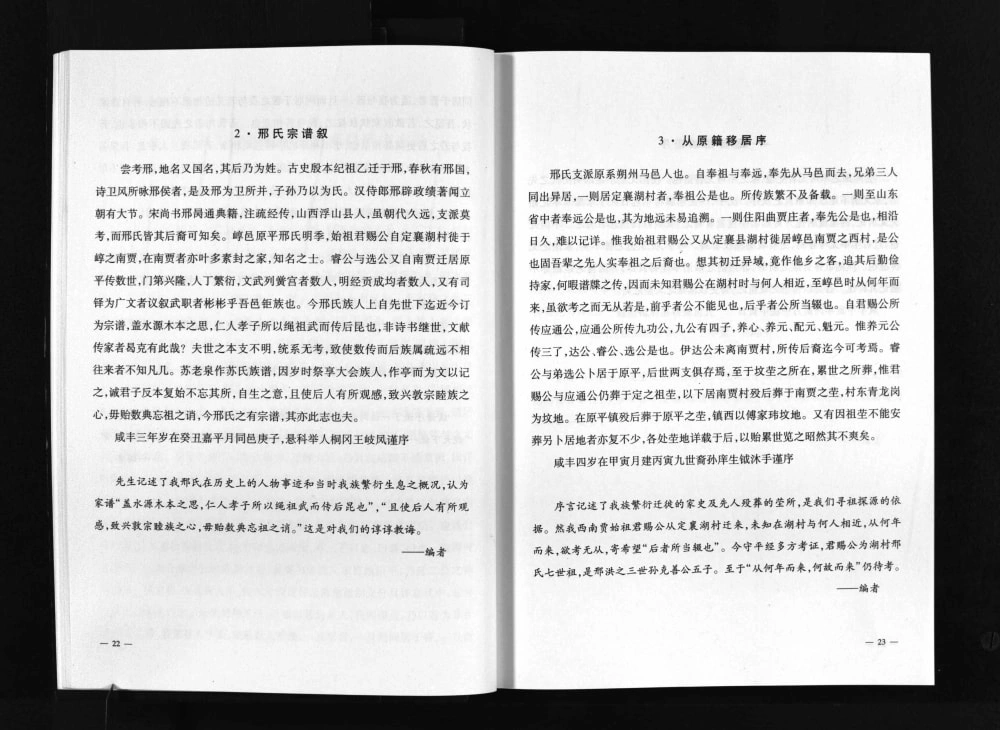 2·邢氏宗谱叙
尝考邢,地名又国名,其后乃为姓。古史殷本纪祖乙迁于邢,春秋有邢国,
诗卫风所咏邢侯者,是及邢为卫所并,子孙乃以为氏。汉侍郎邢辟政绩著闻立
朝有大节。宋尚书邢昺通典籍,注疏经传,山西浮山县人,虽朝代久远,支派莫
考,而邢氏皆其后裔可知矣。崞邑原平邢氏明季,始祖君赐公自定襄湖村徙于
崞之南贾,在南贾者亦叶多素封之家,知名之士。睿公与选公又自南贾迁居原
平传数世,门第兴隆,人丁繁衍,文武列黉宫者数人,明经贡成均者数人,又有司
铎为广文者议叙武职者彬彬乎吾邑钜族也。今邢氏族人上自先世下迄近今订
为宗谱,盖水源木本之思,仁人孝子所以绳祖武而传后昆也,非诗书继世,文献
传家者曷克有此哉?夫世之本支不明,统系无考,致使数传而后族属疏远不相
往来者不知凡几。苏老泉作苏氏族谱,因岁时祭享大会族人,作亭而为文以记
之,诚君子反本复始不忘其所,自生之意,且使后人有所观感,致兴敦宗睦族之
心,毋贻数典忘祖之诮,今邢氏之有宗谱,其亦此志也夫。
咸丰三年岁在癸丑嘉平月同邑庚子,恳科举人桐冈王岐凤谨序
先生记述了我邢氏在历史上的人物事迹和当时我族繁衍生息之概况,认为
家谱“盖水源木本之思,仁人孝子所以绳祖武而传后昆也”,“且使后人有所观
感,致兴敦宗睦族之心,毋贻数典忘祖之诮。”这是对我们的谆谆教诲。
——编者
— 22 —
3·从原籍移居序
邢氏支派原系朔州马邑人也。自奉祖与奉远,奉先从马邑而去,兄弟三人
同出异居,一则居定襄湖村者,奉祖公是也。所传族繁不及备载。一则至山东
省中者奉远公是也,其为地远未易追溯。一则住阳曲贾庄者,奉先公是也,相沿
日久,难以记详。惟我始祖君赐公又从定襄县湖村徙居崞邑南贾之西村,是公
也固吾辈之先人实奉祖之后裔也。想其初迁异域,竟作他乡之客,追其后勤俭
持家,何暇谱牒之传,因而未知君赐公在湖村时与何人相近,至崞邑时从何年而
来,虽欲考之而无从若是,前乎者公不能见也,后乎者公所当辍也。自君赐公所
传应通公,应通公所传九功公,九公有四子,养心、养元、配元、魁元。惟养元公
传三了,达公、睿公、选公是也。伊达公未离南贾村,所传后裔迄今可考焉。睿
公与弟选公卜居于原平,后世两支俱存焉,至于坟茔之所在,累世之所葬,惟君
赐公与应通公仍葬于定之祖茔,以下居南贾村殁后葬于南贾之茔,村东青龙岗
为坟地。在原平镇殁后葬于原平之茔,镇西以傅家玮坟地。又有因祖茔不能安
葬另卜居地者亦复不少,各处茔地详载于后,以贻累世览之昭然其不爽矣。
咸丰四岁在甲寅月建丙寅九世裔孙庠生钺沐手谨序
序言记述了我族繁衍迁徙的家史及先人殁葬的茔所,是我们寻祖探源的依
据。然我西南贾始祖君赐公从定襄湖村迁来,未知在湖村与何人相近,从何年
而来,欲考无从,寄希望“后者所当辍也”。今守平经多方考证,君赐公为湖村邢
氏七世祖,是邢洪之三世孙克善公五子。至于“从何年而来,何故而来”仍待考。
——编者
— 23 —